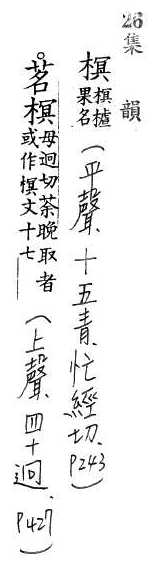 26
集韻
榠 榠樝果名(平聲、十五青.忙經切.P243)
。茗榠 母迥切茶晚取者或作榠文十七(上聲、四十迥、P427)